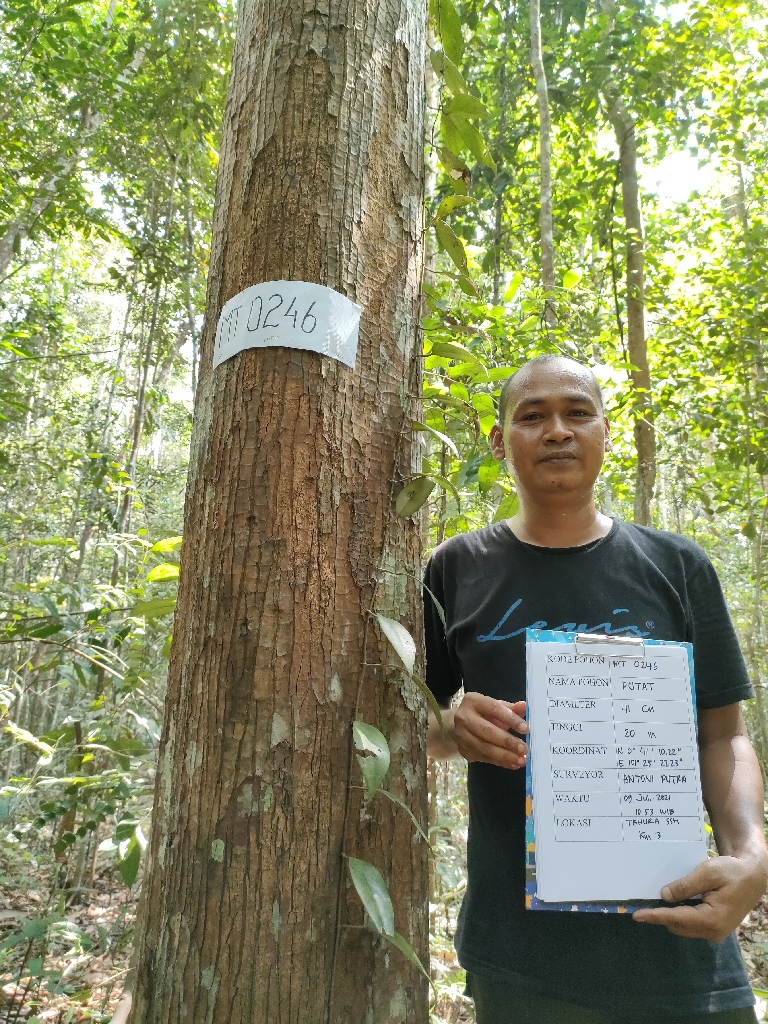 MT 0246
Levis®
KODE POHON MT 0246
NAMA POHON PUTAT
DIAMETER 41 CM
TINGGI 20 m
KOORDINAT
SURVEYOR ANTONI PUTRA
WAKTU 09 JUL 2021
10 53 WIB
LOKASI TAHURA SSH
Km 3